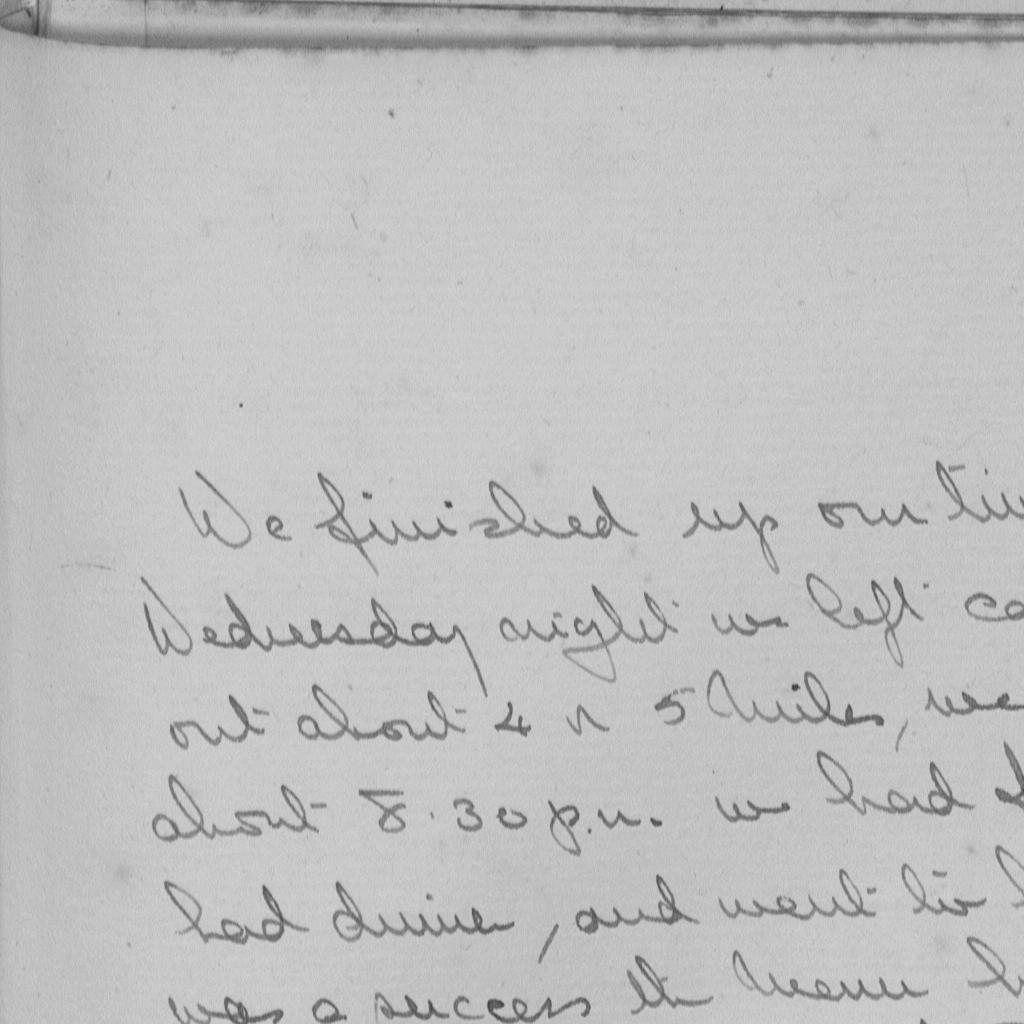 We finished up our
Wednesday night we left
out about 4 or 5 Miles, we
about 8.30 p.m. we had
had dinner, and went to
was a success the Menu